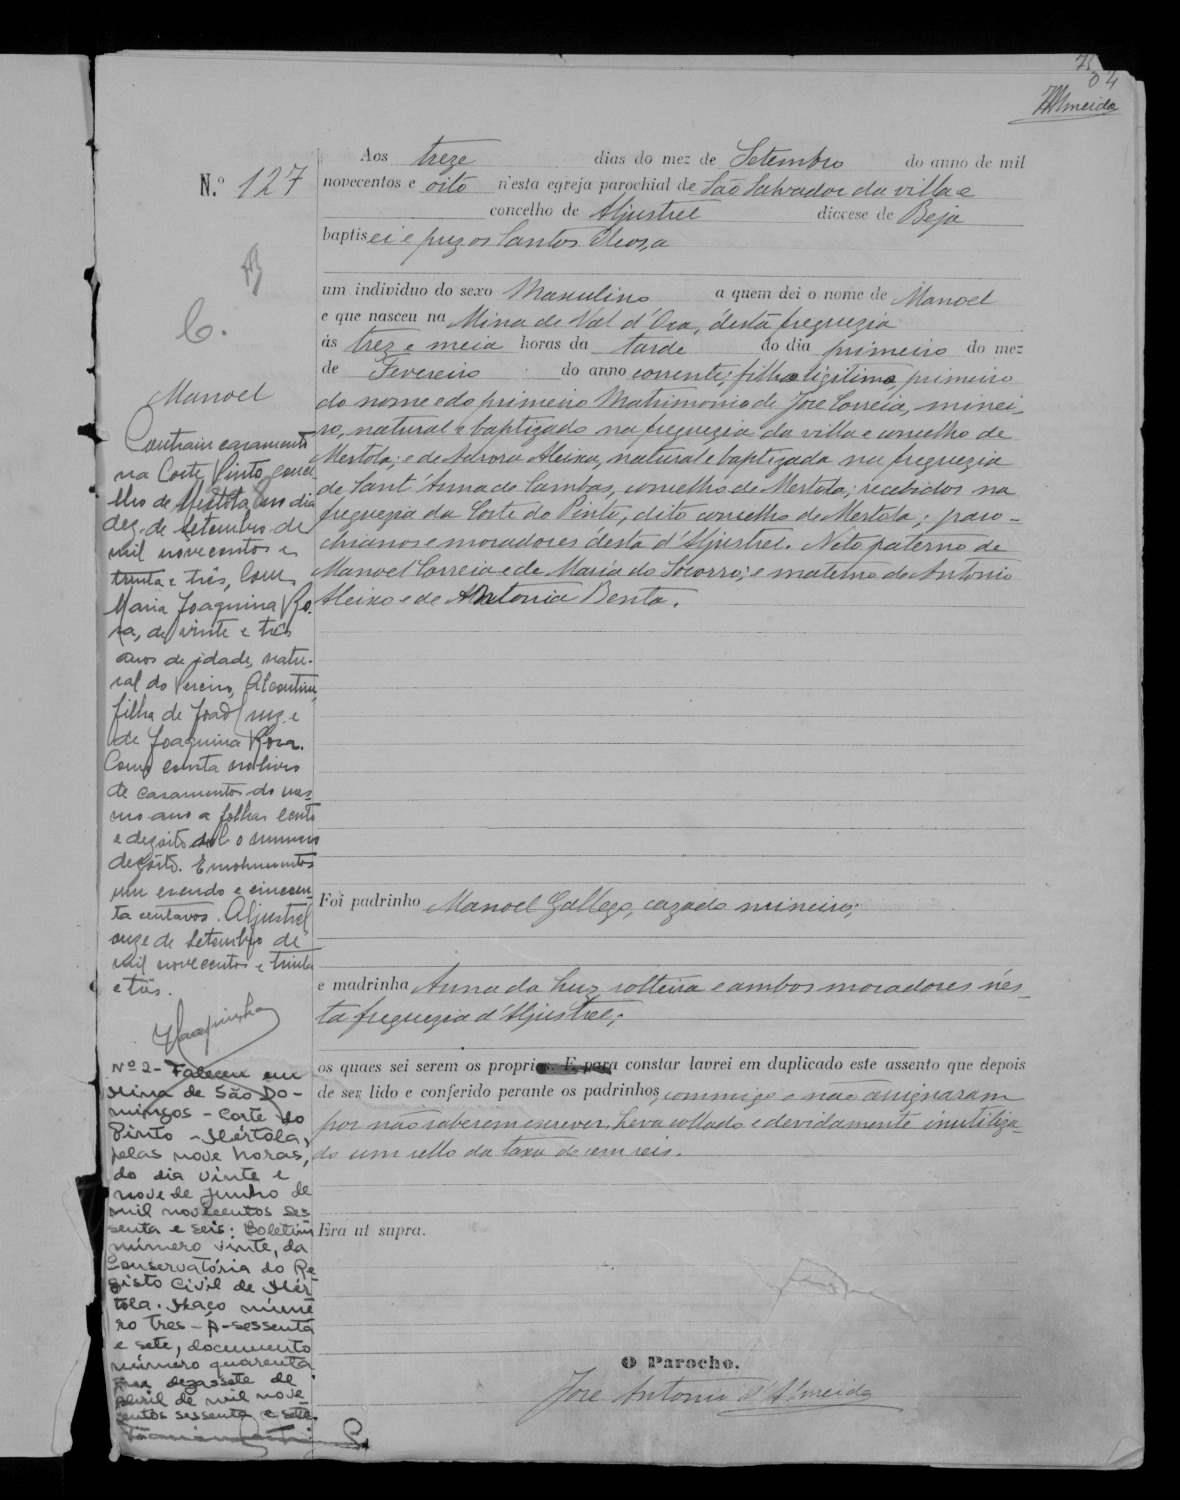 7
04
Almeida
N.º 127
B
C.
Manoel
Aos treze dias do mez de Setembro do anno de mil
novecentos e oito n'esta egreja parochial de São Salvador da villa e
concelho de Aljustrel diocese de Beja
baptisei e puz os Santos Oleos, a
um individuo do sexo Masculino a quem dei o nome de Manoel
e que nasceu na Mina de Val d'Oca, désta freguezia
ás trez e meia horas da tarde do dia primeiro do mez
de Fevereiro do anno corrente; filho ligitimo, primeiro
do nome e do primeiro Matrimonio de José Correia, minei-
ro, natural e baptizado na freguezia da villa e concelho de
Mertola; e de Aleixa, natural e baptizada na freguezia
de Sant'Anna de Cambas, concelho de Mertola; recebidos na
freguezia da Corte do Pinto, dito concelho de Mertola; paro-
chianos e moradores désta d'Aljustrel. Neto paterno de
Manoel Correia e de Maria do Socorro; e materno de Antonio
Aleixo e de Antonia Benta.
Foi padrinho Manoel Gallego, cazado mineiro;
e madrinha Anna da Luz solteira e ambos moradores nés-
ta freguezia d'Aljustrel;
os quaes sei serem os proprios. E para constar lavrei em duplicado este assento que depois
de ser lido e conferido perante os padrinhos, commigo e não assignaram
por não saberem escrever. Leva collado e devidamente inutiliza-
do um sello da taxa de cem reis.
Era ut supra.
O Parocho.
José Antonio d'Almeida
Contraiu casamento
na Corte Pinto, conce
lho de Mértola, no dia
dez de Setembro de
mil novecentos e
trinta e três, com
Maria Joaquina Ro-
sa, de vinte e três
anos de idade, natu-
ral do Pereiro, Alcoutim,
filha de João Cruz e
de Joaquina Rosa.
Como consta no livro
de casamentos do mes-
mo ano a folhas cento
e dezoito sob o numero
dezoito. Emolumentos
um escudo e cincoen-
ta centavos. Aljustrel
onze de Setembro de
mil novecentos e trinta
e três.
Nº 2 - Faleceu em
Mina de São Do-
mingos - Corte do
Pinto - Mértola,
pelas nove horas,
do dia vinte e
nove de junho de
mil novecentos ses
senta e seis. Boletim
número vinte, da
Conservatória do Re-
gisto Civil de Mér
tola. Maço núme
ro tres - A - sessenta
e sete, documento
número quarenta.
Em dezassete de
abril de mil nove
centos sessenta e sete.